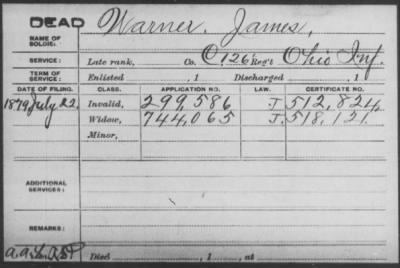 DEAD
NAME OF SOLDIER: Warner, James,
SERVICE: Late rank, Co. C 126 Reg't Ohio Inf.
TERM OF SERVICE: Enlisted , 1 Discharged , 1
DATE OF FILING. CLASS. APPLICATION NO. LAW. CERTIFICATE NO.
1879 July 22. Invalid, 299,586 J. 512,824,
Widow, 744,065 J. 518,121.
Minor,
ADDITIONAL SERVICES:
REMARKS:
Died , 1 , at